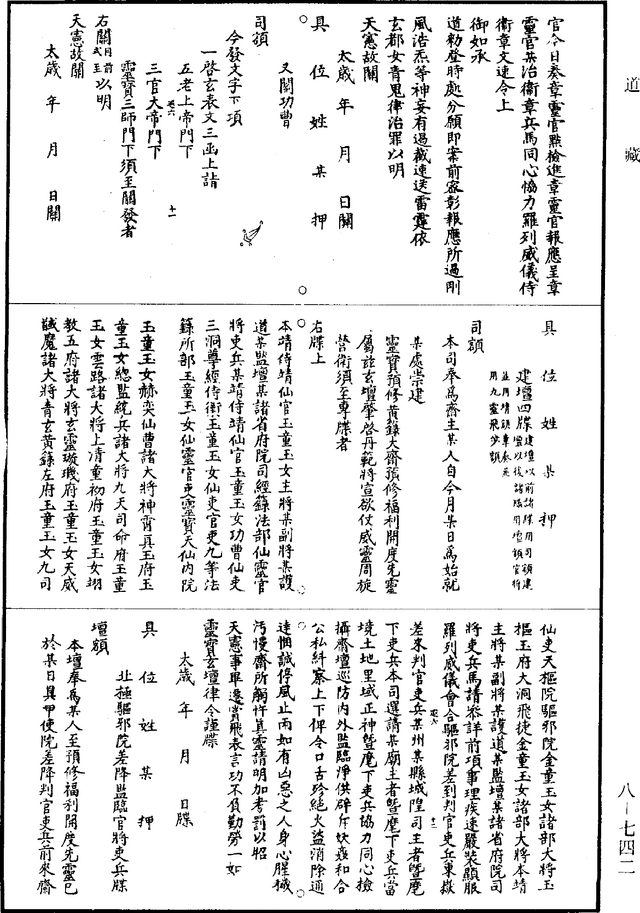 道藏
官今日奏章靈官點檢進章靈官報應呈章
靈官某治衛章兵馬同心恊力羅列威儀侍
衛章文速令上
御如承
道勑登時處分願即案前密彰報應所過剛
風浩炁等神妄有過截速送雷霆依
玄都女青鬼律治罪以明
天憲故關
太歲年月日關
具位姓某押
又關功曹
司額
今發文字下項
一啓玄表文三函上請
五老上帝門下
三官大帝門下
靈寶三師門下須至關發者
右關前式至以明
天憲故關
太歲年月日關
具位姓某押
建壇四牒
司額
本司奉為齋主某人自今月某日為始就
某處崇建
靈寶預修黃籙大齋預修福利開度先靈
屬玆玄壇肇啓丹範將宣欲仗威靈周旋
營衛須至專牒者
右牒上
本靖侍靖仙官玉童玉女主將某副將某護
道某監壇某諸省府院司經籙法部仙靈官
將吏兵某靖侍靖仙官玉童玉女功曹仙吏
三洞尊經侍衛玉童玉女仙吏官吏九等法
籙所部玉童玉女仙靈官吏靈寶天仙內院
玉童玉女赫奕仙曹諸大將神霄真玉府玉
童玉女總監統兵諸大將九天司命府玉童
玉女雲路諸大將上清童初府玉童玉女翊
教五府諸大將玄靈璇璣府玉童玉女天威
馘魔諸大將青玄黃籙左府玉童玉女九司
仙吏天樞院驅邪院金童玉女諸部大將玉
樞玉府大洞飛捷金童玉女諸部大將本靖
主將某副將某護道某監壇某諸省府院司
將吏兵馬請叅詳前項事理疾速嚴裝顯服
羅列威儀會合驅邪院差到判官吏兵東嶽
差來判官吏兵某州某縣城隍司主者暨麾
下吏兵本司選請某廟主者暨麾下吏兵當
境土地里域正神暨麾下吏兵協力同心檢
攝齋壇巡防內外監臨淨供辟斥妖衺和合
公私糾察上下俾令口舌殄絶火盜消除通
達悃誠停風止雨如有凶惡之人身心腥穢
污慢齋所觸忤真靈請明加考罰以昭
天憲事畢遷賞飛表言功不負勤勞一如
靈寶玄壇律令謹牒
太歲年月日牒
具位姓某押
北極驅邪院差降監臨官將吏兵牒
壇額
本壇奉為某人至預修福利開度先靈已
於某日具申使院差降判官吏兵前來齋
八—七四二